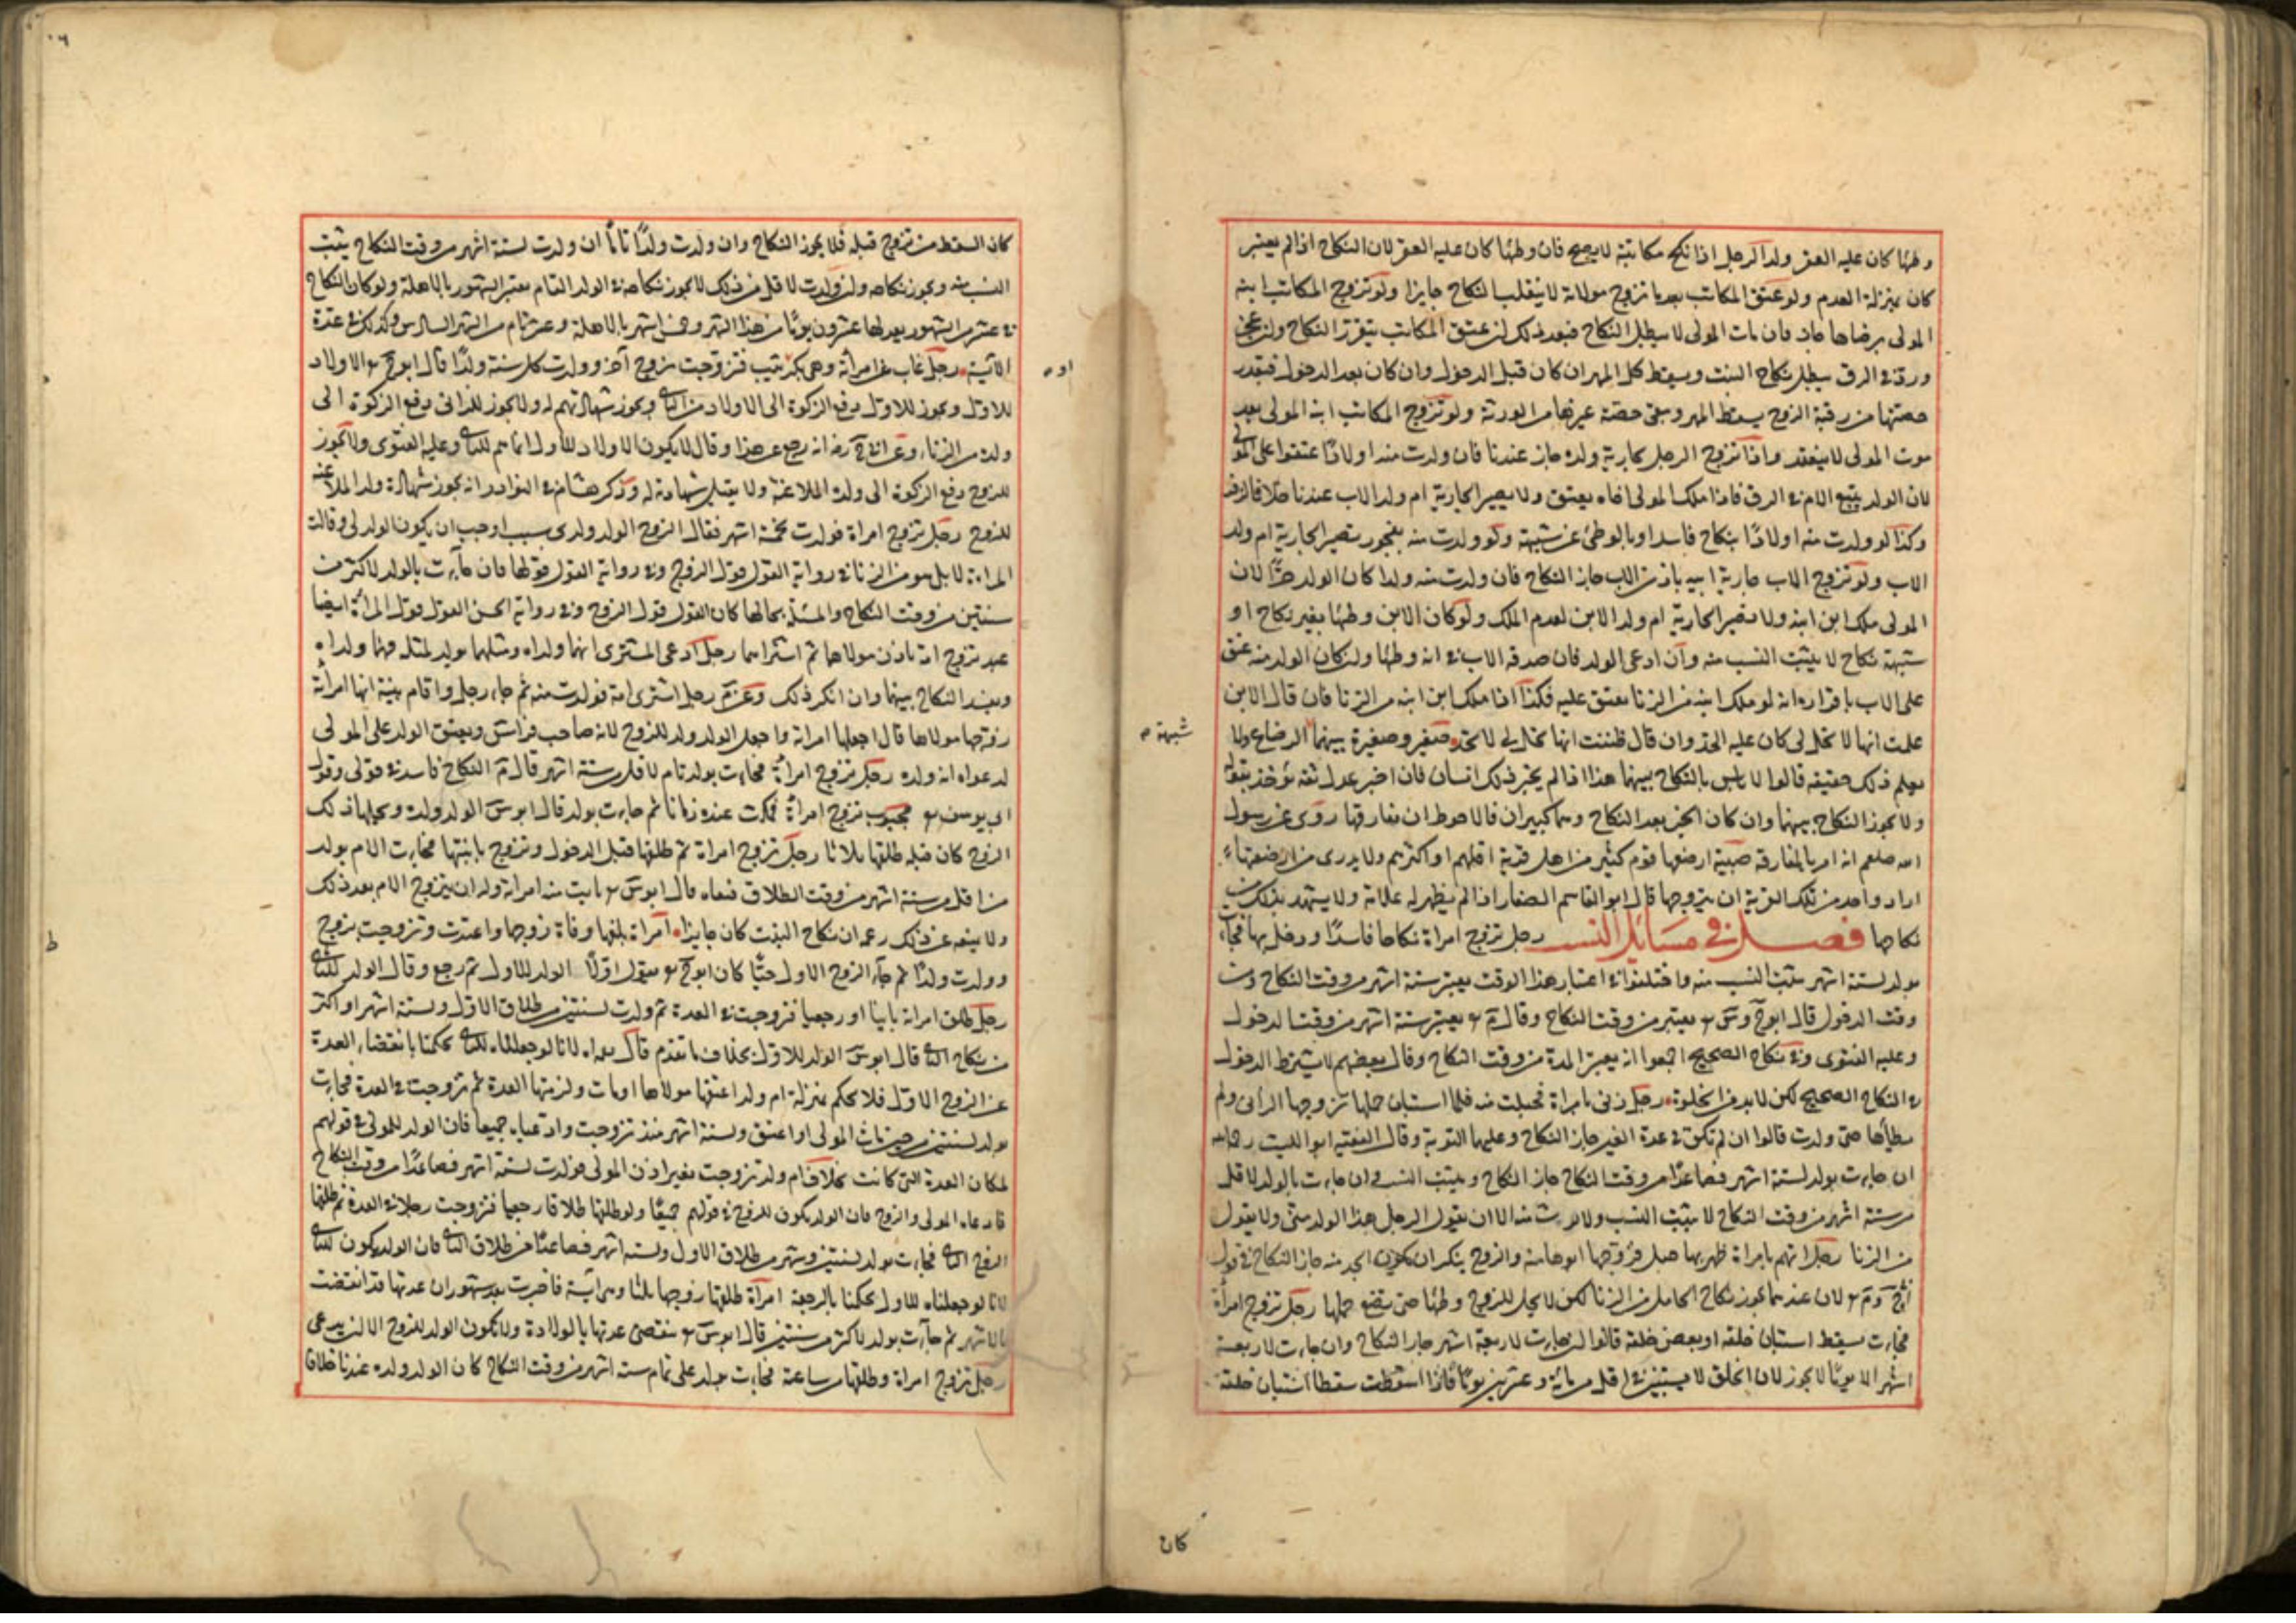 وطئها كان عليه العقر ولد الرجل اذا نكح مكاتبته لا يصح فان وطئها كان عليه العقر لان النكاح اذا لم يعتبر
كان بمنزلة العدم ولو عتق المكاتب بعد ما تزوج مولاته لا ينقلب النكاح جايزا ولو تزوج المكاتب ابنة
المولى برضاها جاز فان مات المولى لا يبطل النكاح فبعد ذلك ان عتق المكاتب يتقرر النكاح وان عجز
ورد في الرق يبطل نكاح البنت ويسقط كل المهر ان كان قبل الدخول وان كان بعد الدخول فبقدر
حصتها من رقبة الزوج يسقط المهر وبقى حصة غيرها من الورثة ولو تزوج المكاتب ابنة المولى بعد
موت المولى لا ينعقد واذا تزوج الرجل بجارية ولده جاز عندنا فان ولدت منه اولادًا عتقوا على المولى
لان الولد يتبع الام في الرق فاذا ملك المولى اخاه يعتق ولا يصير الجارية ام ولد الاب عندنا خلافا لزفر
وكذا لو ولدت منه اولادًا بنكاح فاسد او بالوطئ عن شبهة ولو ولدت منه بفجور تصير الجارية ام ولد
الاب ولو تزوج الاب جارية ابيه باذن الاب جاز النكاح فان ولدت منه ولدا كان الولد حرًا لان
المولى ملك ابن ابنه ولا تصير الجارية ام ولد الابن لعدم الملك ولو كان الابن وطئها بغير نكاح او
شبهة نكاح لا يثبت النسب منه وان ادعى الولد فان صدقه الاب في انه وطئها وان كان الولد منه عتق
على الاب باقراره انه لو ملك ابنه من الزنا يعتق عليه فكذا اذا ملك ابن ابنه من الزنا فان قال الابن
علمت انها لا تحل لى كان عليه الحد وان قال ظننت انها تحل لى لا يحد صغير وصغيرة بينهما الرضاع ولا
شبهة م
يعلم ذلك حقيقة قالوا لا باس بالنكاح بينهما هذا اذا لم يخبر ذلك انسان فان اخبر عدل ثقة يؤخذ بقوله
ولا يجوز النكاح بينهما وان كان الخبر بعد النكاح وهما كبيران فالاحوط ان يفارقها روى عن رسول
الله صلعم انه امر بالمفارقة صبية ارضعها قوم كثير من اهل قرية اقلهم او اكثرهم ولا يدرى من ارضعها
اراد واحد من تلك القرية ان يتزوجها قال ابو القاسم الصفار اذا لم يظهر له علامة ولا يشهد بذلك
نكاحها فصل في مسائل النسب رجل تزوج امراة نكاحا فاسدًا ودخل بها فجاءت
بولد لستة اشهر يثبت النسب منه واختلفوا في اعتبار هذا الوقت يعتبر ستة اشهر من وقت النكاح او من
وقت الدخول قال ابو ح وس يعتبر من وقت النكاح وقال م يعتبر ستة اشهر من وقت الدخول
وعليه الفتوى وفي نكاح الصحيح اجمعوا انه يعتبر المدة من وقت النكاح وقال بعضهم لا يشترط الدخول
في النكاح الصحيح لكن لا بد من الخلوة رجل زنى بامراة فحبلت منه فلما استبان حملها تزوجها الزانى ولم
يطأها حتى ولدت قالوا ان لم تكن في عدة الغير جاز النكاح وعليهما التوبة وقال الفقيه ابو الليث رحمه الله
ان جاءت بولد لستة اشهر فصاعدًا من وقت النكاح جاز النكاح ويثبت النسب وان جاءت بالولد لاقل
من ستة اشهر من وقت النكاح لا يثبت النسب ولا يرث منه الا ان يقول الرجل هذا الولد منى ولا يقول
من الزنا رجل اتهم بامراة ظهر بها حبل فزوجها ابوها منه والزوج ينكر ان يكون الحبل منه جاز النكاح في قول
ابى ح وم لان عندهما يجوز نكاح الحامل من الزنا لكن لا يحل للزوج وطئها حتى تضع حملها رجل تزوج امرأة
فجاءت بسقط استبان خلقه او بعض خلقه قالوا ان جاءت لاربعة اشهر جاز النكاح وان جاءت لاربعة
اشهر الا يومًا لا يجوز لان الخلق لا يستبين في اقل من مائة وعشرين يومًا فاذا اسقطت سقطا استبان خلقه
كان
كان السقط من تزوج قبله فلا يجوز النكاح وان ولدت ولدًا تامًا ان ولدت لستة اشهر من وقت النكاح يثبت
النسب منه ويجوز نكاحه وان ولدت لاقل من ذلك لا يجوز نكاحه في الولد التام يعتبر الشهور بالاهلة ولو كان النكاح
في عشر من الشهور يعد لها عشرون يومًا من هذا الشهر وخمس اشهر بالاهلة وعشر ايام من الشهر السادس وكذلك في عدة
الآئسة رجل غاب عن امرأته وهي بكر ثيب فتزوجت بزوج آخر وولدت كل سنة ولدًا قال ابو ح الاولاد
او م
للاول ويجوز للاول دفع الزكوة الى الاولاد من الثانى ويجوز شهادتهم له ولا يجوز للزانى دفع الزكوة الى
ولده من الزنا وعن ابى ح انه رجع عن هذا وقال لا يكون الاولاد للاول انما هم للثانى وعليه الفتوى ولا يجوز
للزوج دفع الزكوة الى ولده الملاعنة ولا يقبل شهادته له وذكر هشام في النوادر انه يجوز شهادة ولد الملاعنة
للزوج رجل تزوج امراة فولدت لخمسة اشهر فقال الزوج الولد ولدى بسبب اوجب ان يكون الولد لى وقالت
المراة لا بل هو من الزنا في رواية القول قول الزوج وفي رواية القول قولها فان جاءت بالولد لاكثر من
سنتين من وقت النكاح والمسئلة بحالها كان القول قول الزوج وفي رواية الحسن القول قول المرأة ايضا
عبد تزوج امة باذن مولاهما ثم اشتراهما رجل ادعى المشترى انهما ولداه ومثلهما يولد لمثله فهما ولداه
ويفسد النكاح بينهما وان انكر ذلك وعن م رجل اشترى امة فولدت منه ثم جاء رجل واقام بينة انها امرأته
زوجها مولاها قال اجعلها امراته واجعل الولد ولد للزوج لانه صاحب فراش ويعتق الولد على المولى
لدعواه انه ولده رجل تزوج امرأة فجاءت بولد تام لاقل من ستة اشهر قال م النكاح فاسد في قولى وقول
ابى يوسف مجبوب تزوج امرأة فمكثت عنده زمانا ثم جاءت بولد قال ابو س الولد ولده ويحلها ذلك
الزوج كان قبله طلقها ثلاثا رجل تزوج امراة ثم طلقها قبل الدخول وتزوج بابنتها فجاءت الام بولد
من اقل من ستة اشهر من وقت الطلاق فنفاه قال ابو س بانت منه امراته وله ان يتزوج الام بعد ذلك
ولا يمنعه عن ذلك زعمه ان نكاح البنت كان جايزا امراة بلغها وفاة زوجها واعتدت وتزوجت بزوج
ط
وولدت ولدًا ثم جاء الزوج الاول حيًا كان ابو ح يقول اولًا الولد للاول ثم رجع وقال الولد للثانى
رجل طلق امراته باينا او رجعيا فتزوجت في العدة ثم ولدت لسنتين من طلاق الاول ولستة اشهر او اكثر
من نكاح الثانى قال ابو س الولد للاول بخلاف ما تقدم قال لانا لو جعلناه للثانى حكمنا بانقضاء العدة
عن الزوج الاول فلا يحكم بمنزلة ام ولد اعتقها مولاها او مات ولزمتها العدة ثم تزوجت في العدة فجاءت
بولد لسنتين من حين مات المولى او اعتق ولستة اشهر منذ تزوجت وادعياه جميعا فان الولد للمولى في قولهم
لمكان العدة التى كانت بخلاف ام ولد تزوجت بغير اذن المولى فولدت لستة اشهر فصاعدًا من وقت النكاح
فادعاه المولى والزوج فان الولد يكون للزوج في قولهم جميعًا ولو طلقها طلاقا رجعيا فتزوجت رجلا في العدة ثم طلقها
الزوج الثانى فجاءت بولد لسنتين وشهر من طلاق الاول ولستة اشهر فصاعدًا من طلاق الثانى فان الولد يكون للثانى
لانا لو جعلناه للاول حكمنا بالرجعة امرأة طلقها زوجها ثلثا وهي آيسة فاخبرت بعد شهور ان عدتها قد انقضت
بالاشهر ثم جاءت بولد لاكثر من سنتين قال ابو س تنقضى عدتها بالولادة ولا يكون الولد للزوج الا ان يدعى
رجل تزوج امراة وطلقها من ساعته فجاءت بولد على تمام ستة اشهر من وقت النكاح كان الولد ولده عندنا خلافا